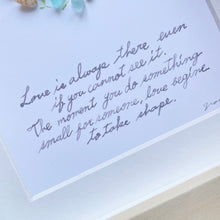 Love is always there, even
if you cannot see it.
The moment you do something
small for someone, love begins
to take shape.